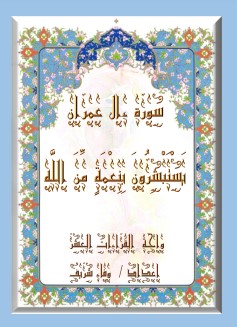 سورة ءال عمران
يستبشرون بنعمة من الله
واحة القراءات العشر
إعداد / وفاء شريف